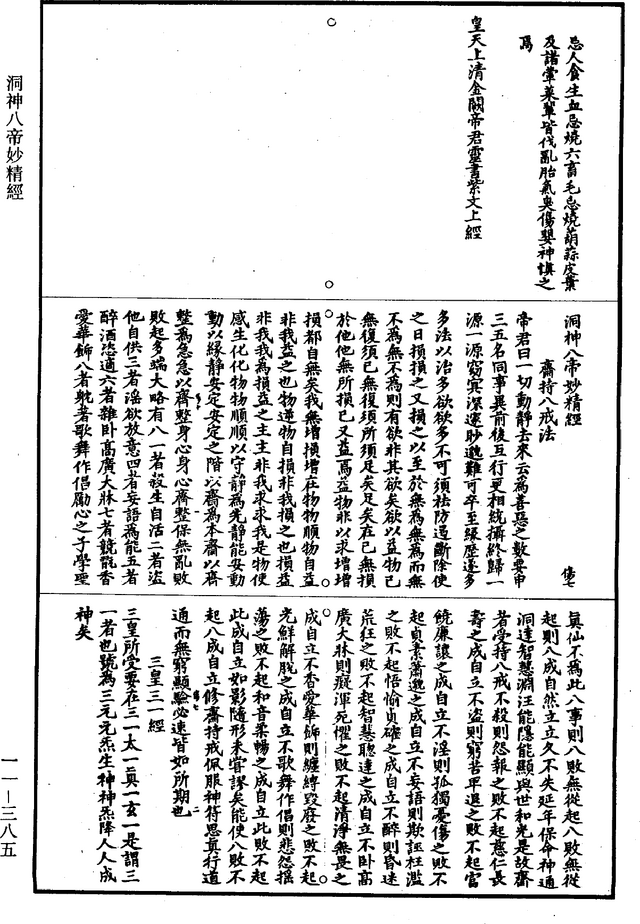 洞神八帝妙精經
一一—三八五
忌人食生血忌燒六畜毛忌燒葫蒜皮葉
及諸葷菜輩皆伐亂胎氣臭傷嬰神慎之
焉
皇天上清金闕帝君靈書紫文上經
洞神八帝妙精經
傷七
齋持八戒法
帝君曰一切動靜去來云為善惡之數要由
三五名同事異前後互行更相統攝終歸一
源一源窈冥深遠眇邈難可卒至緣歷遂多
多法以治多欲欲多不可須祛防遏斷除使
之日損損之又損之以至於無為無為而無
不為無不為則有欲非其欲矣欲以益物已
無復須已無復須所須足矣足矣在已無損
於他他無所損已又益焉益物非以求增增
損都自無矣我無增損增在物物順物自益
非我益之也物逆物自損非我損之也損益
非我我為損益之主主非我求求我是物使
感生化化物物順順以守靜為先靜能安動
動以緣靜安定安定之階以齋為本齋以齊
整為急急以齊整身心身心齊整保無亂敗
敗起多端大略有八一者殺生自活二者盜
他自供三者淫欲放意四者妄語為能五者
醉酒恣適六者雜臥高廣大牀七者競飾香
愛華飾八者躭著歌舞作倡勵心之子學堊
真仙不為此八事則八敗無從起八敗無從
起則八成自然立立久不失延年保命神通
洞達智慧淵汪能隱能顯與世和光是故齋
者受持八戒不殺則怨報之敗不起慈仁長
壽之成自立不盜則窮苦早退之敗不起富
饒廉讓之成自立不淫則孤獨憂傷之敗不
起貞素蕭邈之成自立不妄語則欺誑枉濫
之敗不起悟愉貞確之成自立不醉則昏迷
荒狂之敗不起智慧聰達之成自立不臥高
廣大牀則癡渾死懼之敗不起清淨無畏之
成自立不香愛華飾則纏縛毀廢之敗不起
光鮮解脫之成自立不歌舞作倡則悲怨搖
蕩之敗不起和音柔暢之成自立此敗不起
此成自立如影隨形未嘗謬矣能使八敗不
起八成自立修齋持戒佩服神符思真行道
通而無窮顯驗必速皆如所期也
三皇三一經
三皇所受要在三一太一真一玄一是謂三
一者也號為三元元炁生神神炁降人人成
神矣